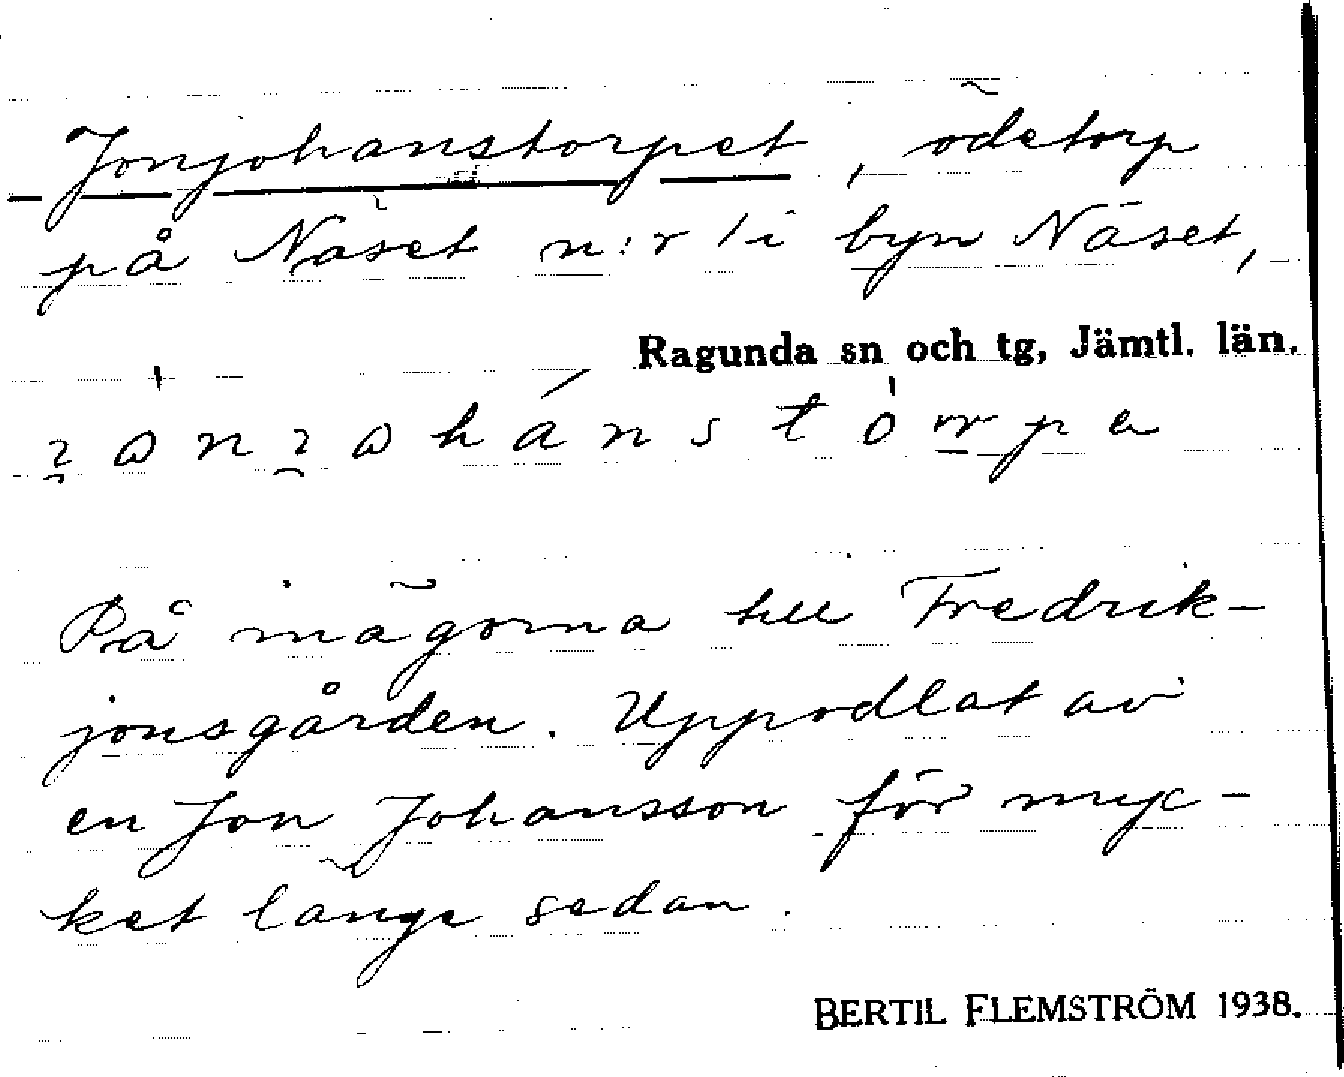 Jonjohanstorpet, ödetorp
på Näset n:r 1 i byn Näset,
Ragunda sn och tg, Jämtl. län.
På inägorna till Fredrik-
jonsgården. Uppodlat av
en Jon Johansson för myc-
ket länge sedan.
BERTIL FLEMSTRÖM 1938.